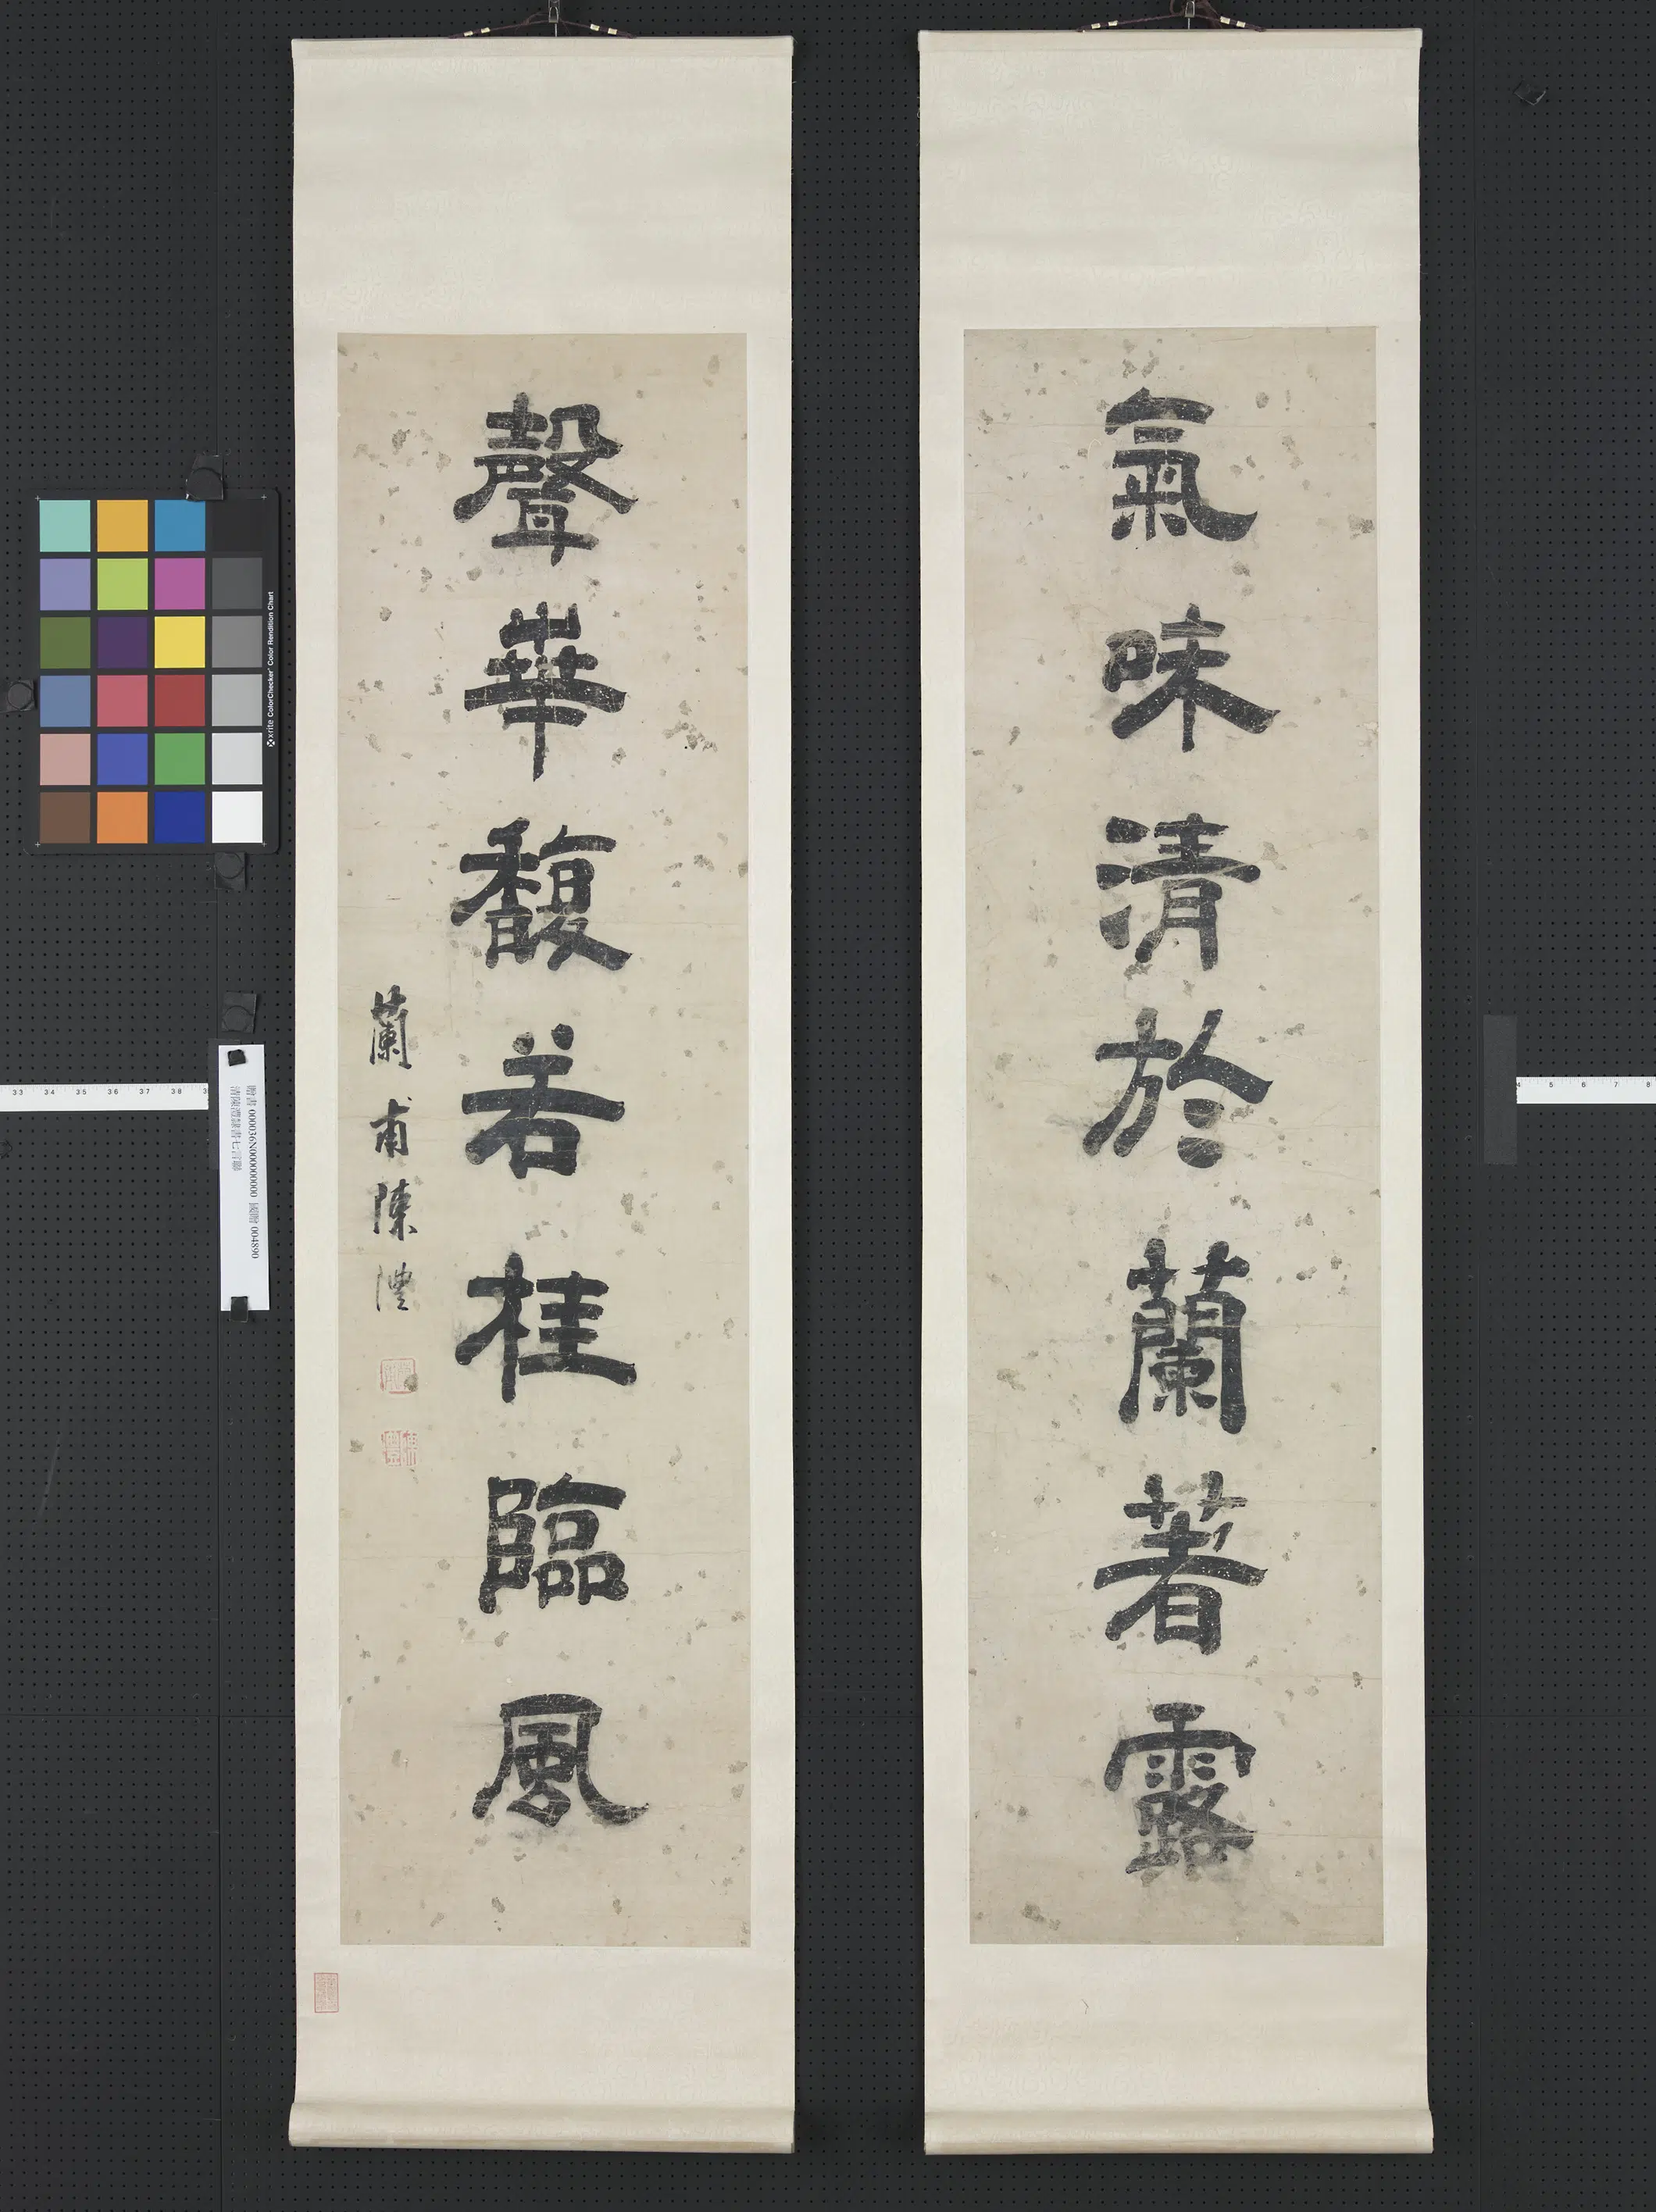 氣味清於蘭著露
聲華馥若桂臨風
蘭甫陳澧
贈書 000036N000000000 國贈 004890
清陳澧隸書七言聯
xrite ColorChecker Color Rendition Chart
33 34 35 36 37 38
4 5 6 7 8